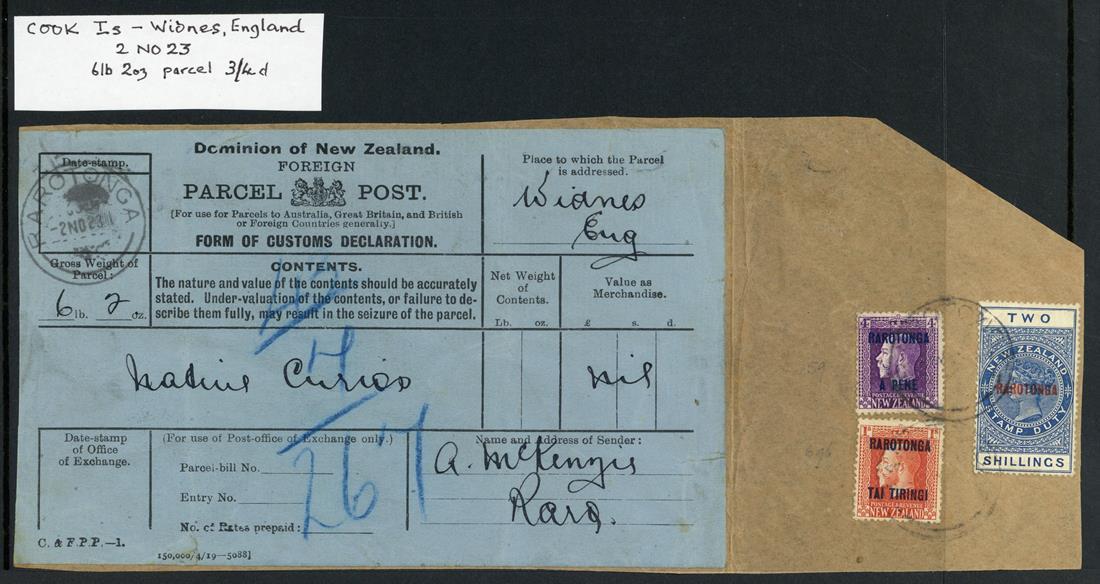 COOK Is - Widnes, England
2 NO 23
6lb 2oz parcel 3/4d
Dominion of New Zealand.
FOREIGN
PARCEL POST.
[For use for Parcels to Australia, Great Britain, and British
or Foreign Countries generally.]
FORM OF CUSTOMS DECLARATION.
Date-stamp.
RAROTONGA
2NO23
Place to which the Parcel
is addressed.
Widnes
Eng
Gross Weight of
Parcel:
6 lb. 2 oz.
CONTENTS.
The nature and value of the contents should be accurately
stated. Under-valuation of the contents, or failure to de-
scribe them fully, may result in the seizure of the parcel.
Net Weight
of
Contents.
Lb. oz.
Value as
Merchandise.
£ s. d.
Native Curios
nil
4
267
Date-stamp
of Office
of Exchange.
(For use of Post-office of Exchange only.)
Parcel-bill No.
Entry No.
No. of Rates prepaid:
Name and Address of Sender:
A. McKenzie
Raro.
C. & F.P.P.—1.
150,000/4/19—5088]
4d
RAROTONGA
A PENE
POSTAGE & REVENUE
NEW ZEALAND
RAROTONGA
TAI TIRINGI
POSTAGE & REVENUE
NEW ZEALAND
TWO
NEW ZEALAND
RAROTONGA
STAMP DUTY
SHILLINGS